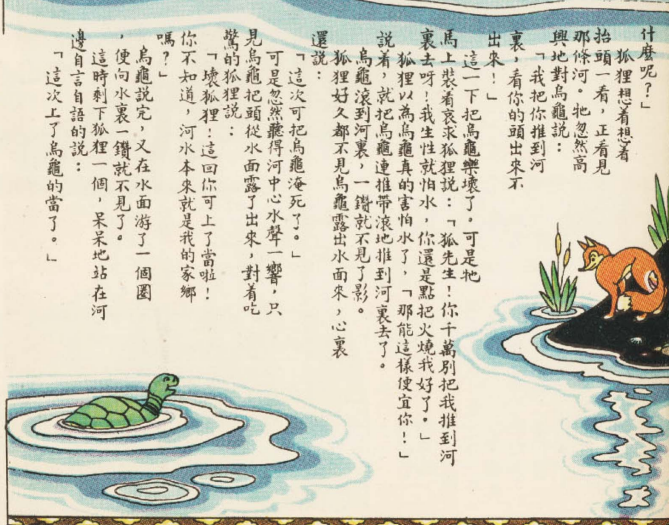 什麼呢？」
狐狸想着想着
抬頭一看，正看見
那條河。牠忽然高
興地對烏龜說：
「我把你推到河
裏，看你的頭出來不
出來！」
這一下把烏龜樂壞了。可是牠
馬上裝着哀求狐狸說：「狐先生！你千萬別把我推到河
裏去呀！我生性就怕水，你還是點把火燒我好了。」
狐狸以為烏龜真的害怕水了，「那能這樣便宜你！」
說着，就把烏龜連推帶滾地推到河裏去了。
烏龜滾到河裏，一鑽就不見了影。
狐狸好久都不見烏龜露出水面來，心裏
還說：
「這次可把烏龜淹死了。」
可是忽然聽得河中心水聲一響，只
見烏龜把頭從水面露了出來，對着吃
驚的狐狸說：
「壞狐狸！這回你可上了當啦！
你不知道，河水本來就是我的家鄉
嗎？」
烏龜說完，又在水面游了一個圈
，便向水裏一鑽就不見了。
這時剩下狐狸一個，呆呆地站在河
邊自言自語的說：
「這次上了烏龜的當了。」